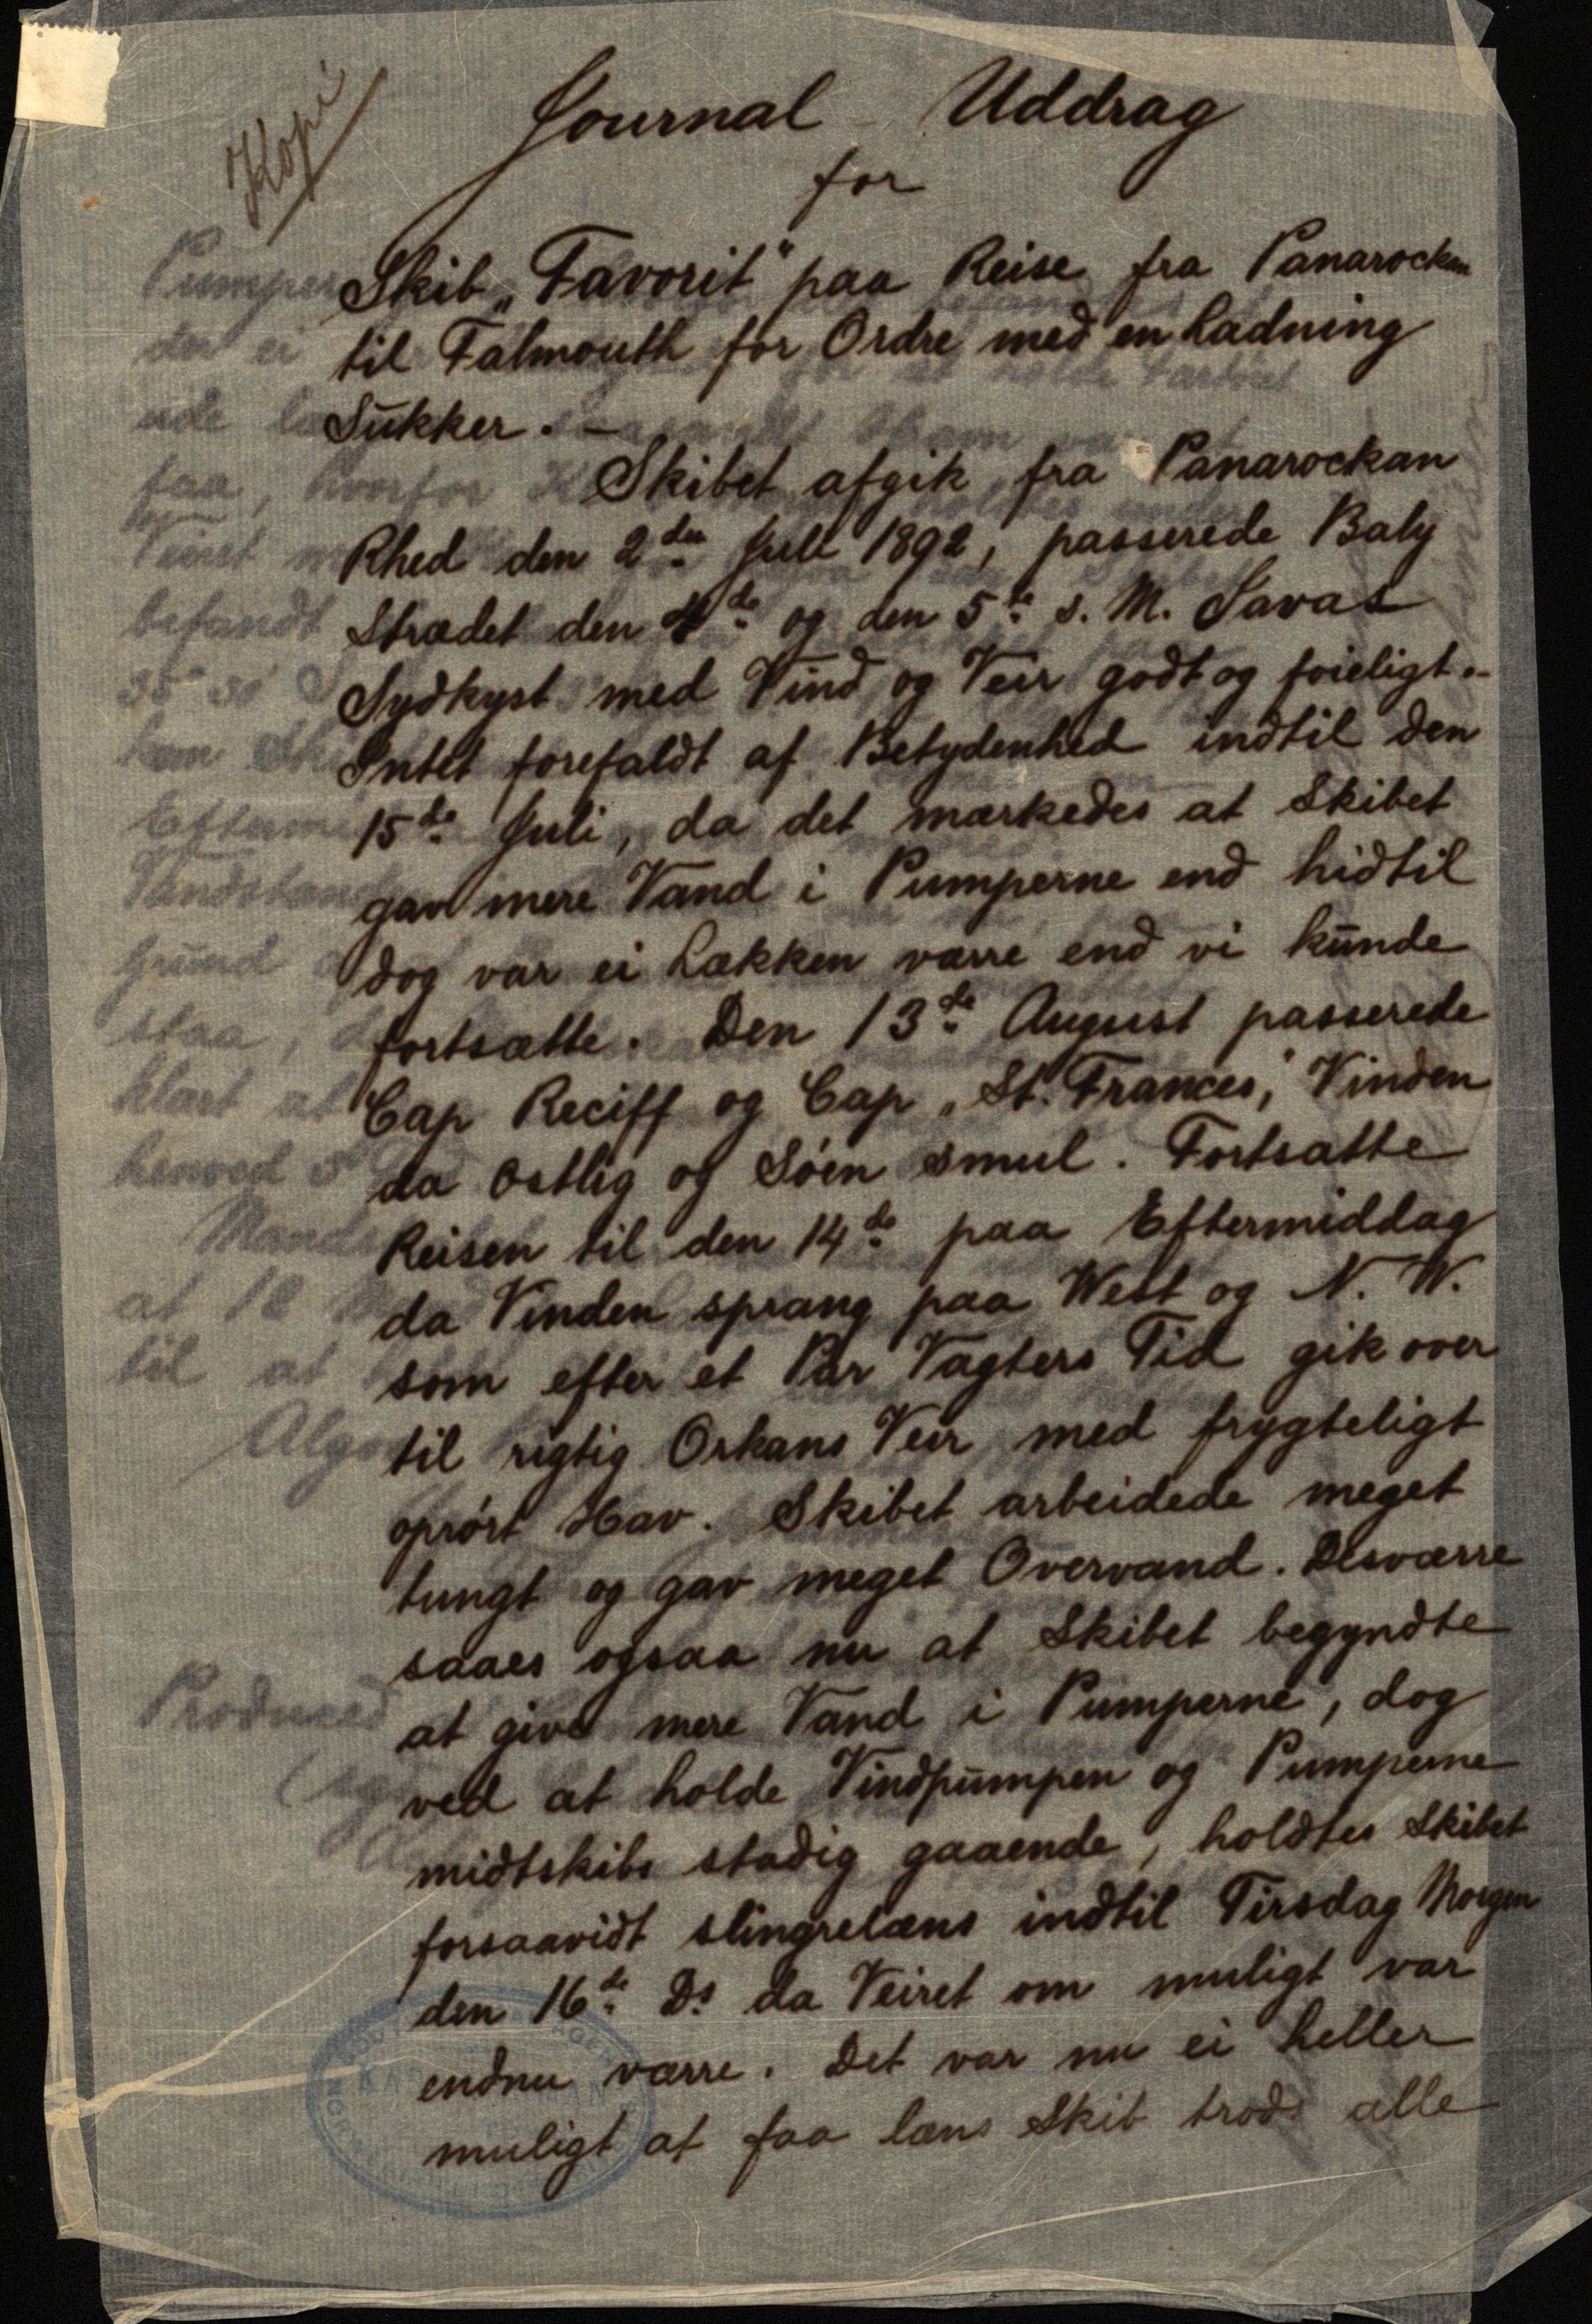 Kopi
Journal - Uddrag
for
Skib „Favorit" paa Reise fra Panarockan
til Falmouth for Ordre med en Ladning
Sukker. -
Skibet afgik fra Panarockan
Rhed den 2den Juli 1892, passerede Baly
Strædet den 4de og den 5te s. M. Javas
Sydkyst med Vind og Veir godt og føieligt.-
Intet forefaldt af Betydenhed indtil den
15de Juli, da det mærkedes at Skibet
gav mere Vand i Pumperne end hidtil
dog var ei Lækken værre end vi kunde
fortsætte. Den 13de August passerede
Cap Reciff og Cap „St. Frances," Vinden
da Ostlig og Søen smul. Fortsatte
Reisen til den 14de paa Eftermiddag
da Vinden sprang paa West og N. W.
som efter et Par Vagters Tid gik over
til rigtig Orkans Veir med frygteligt
oprørt Hav. Skibet arbeidede meget
tungt og gav meget Overvand. Desværre
saaes ogsaa nu at Skibet begyndte
at give mere Vand i Pumperne, dog
ved at holde Vindpumpen og Pumperne
midtskibs stadig gaaende, holdtes Skibet
forsaavidt slingrelæns indtil Tirsdag Morgen
den 16de Ds da Veiret om muligt var
endnu værre. Det var nu ei heller
muligt at faa læns Skib trods alle